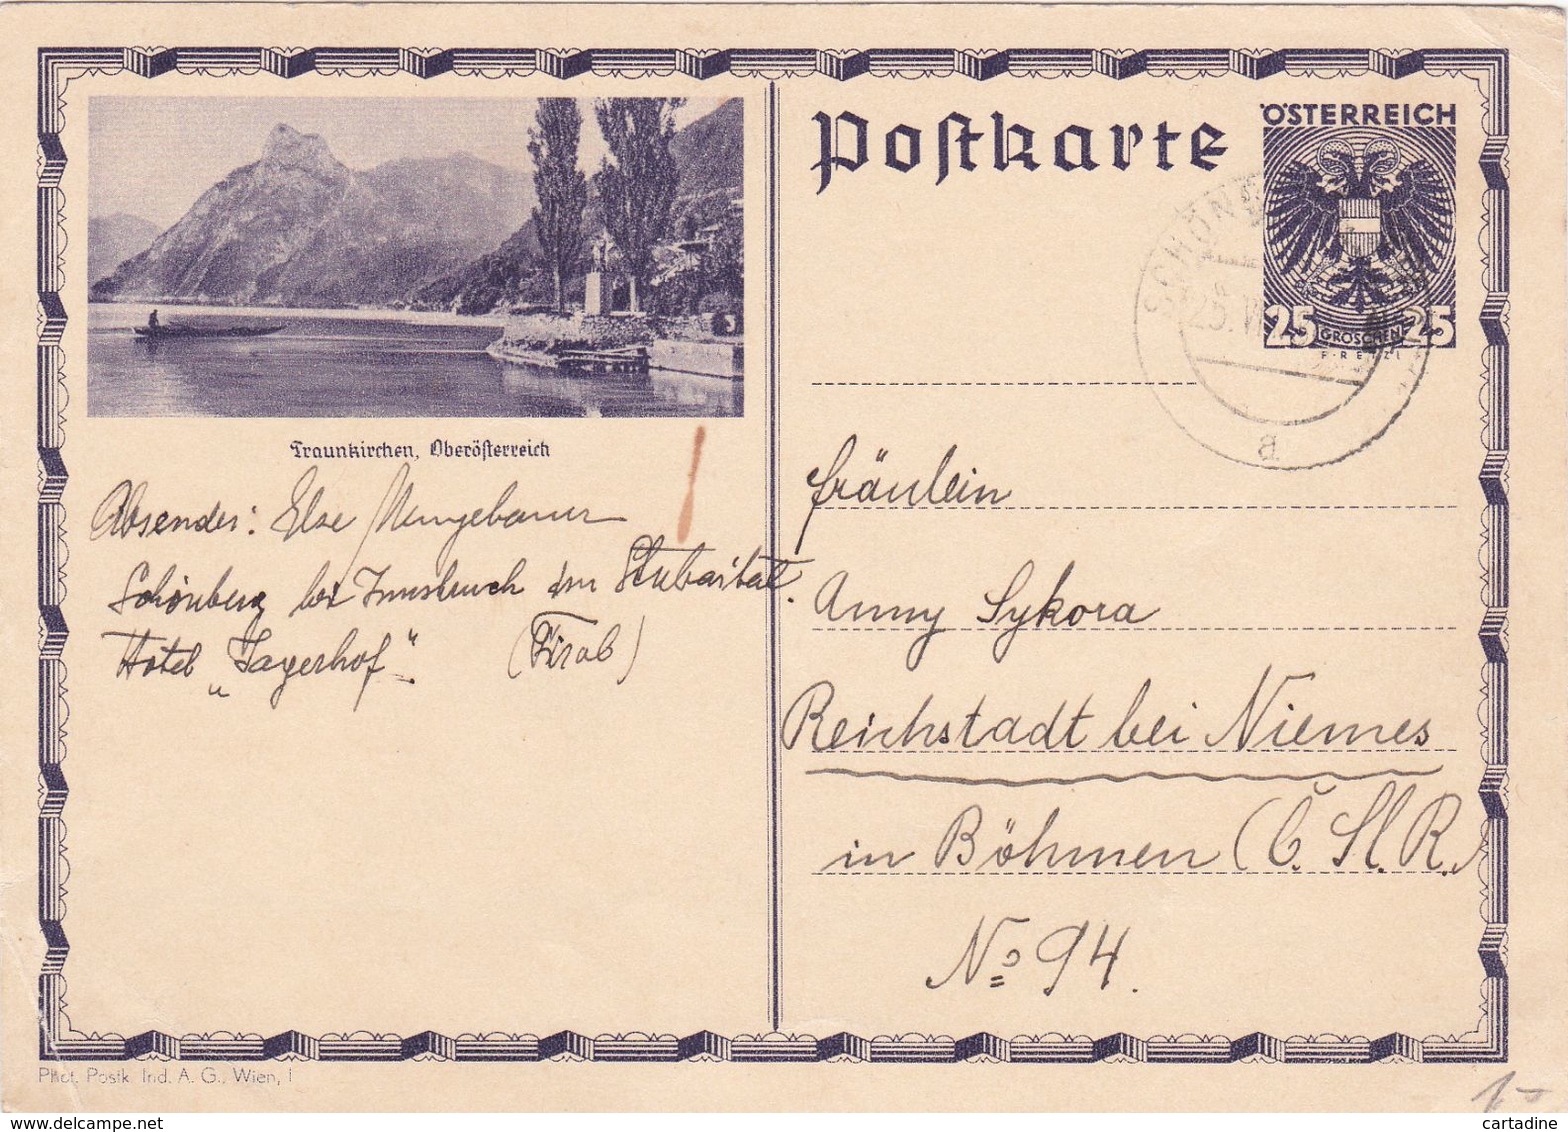 Postkarte
ÖSTERREICH
25 GROSCHEN 25
SCHÖNBE
25. VI
a
Traunkirchen, Oberösterreich
Absender: Else Neugebauer
Schönberg bei Innsbruck im Stubaital.
Hotel „Jagerhof“ (Tirol)
Fräulein
Anny Sykora
Reichstadt bei Niemes
in Böhmen (Č. Sl. R.)
No 94.
Phot. Postk. Ind. A. G., Wien, I
delcampe.net
cartadine